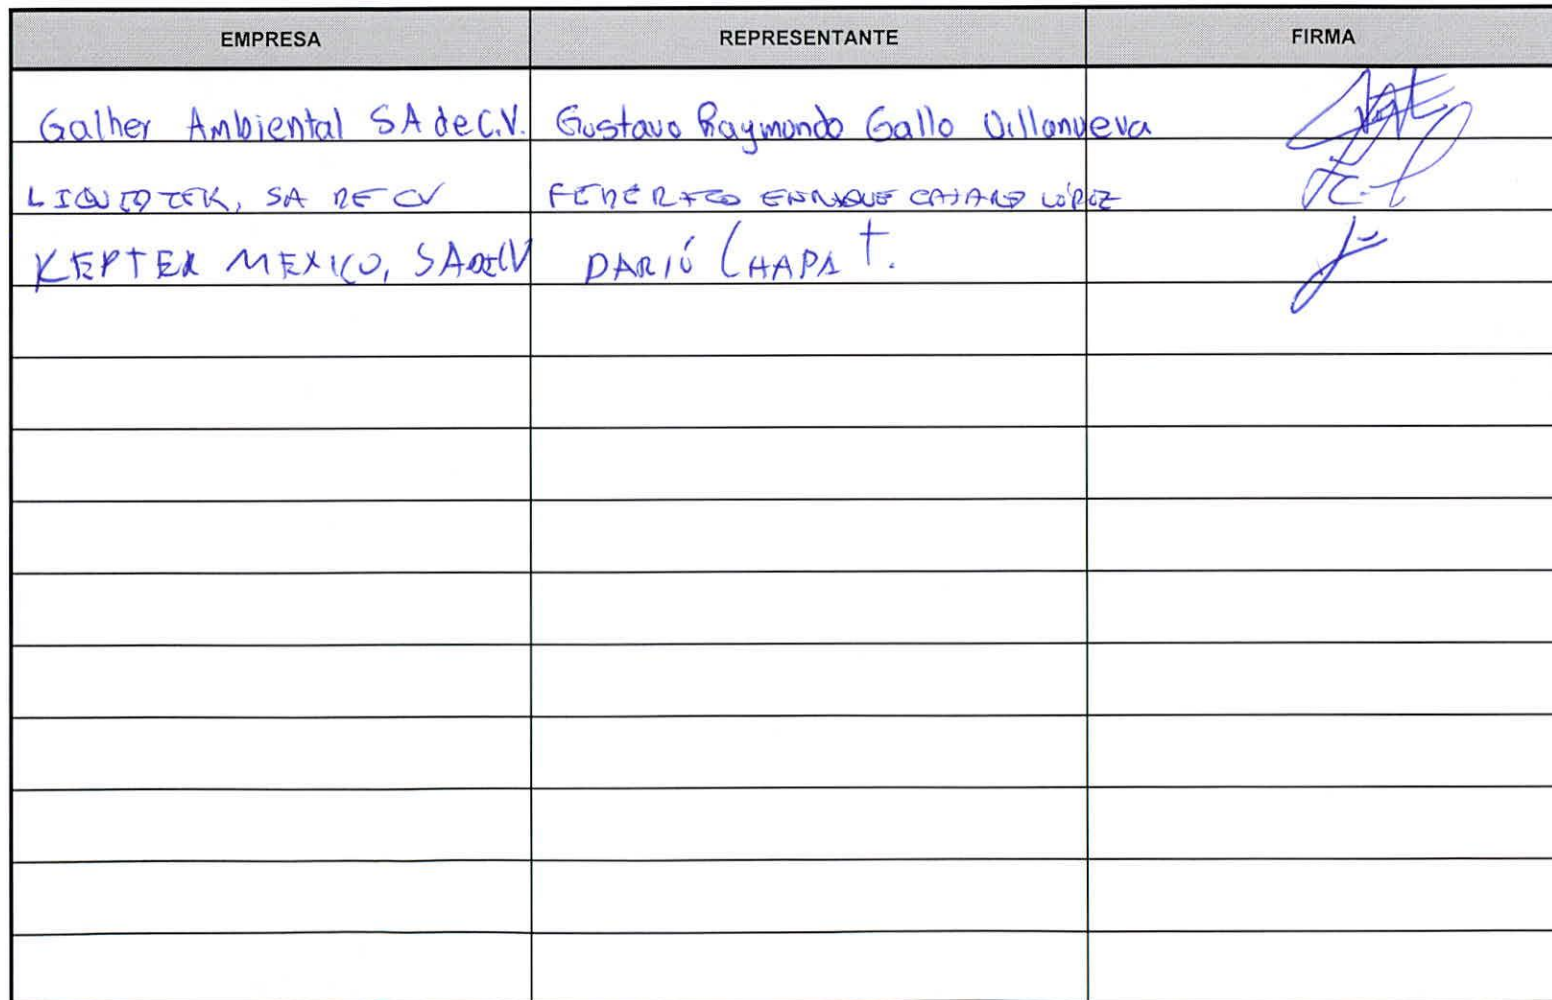 EMPRESA REPRESENTANTE FIRMA
Galher Ambiental SA de C.V. Gustavo Raymundo Gallo Villanueva
LIQUIDTEK, SA DE CV FEDERICO ENRIQUE LÓPEZ
KEPTER MEXICO, SA DE CV DARIÓ CHAPA T.